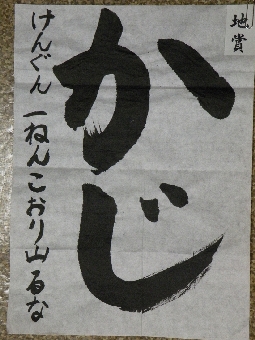 地賞
かじ
けんぐん 一ねん こおり山 るな